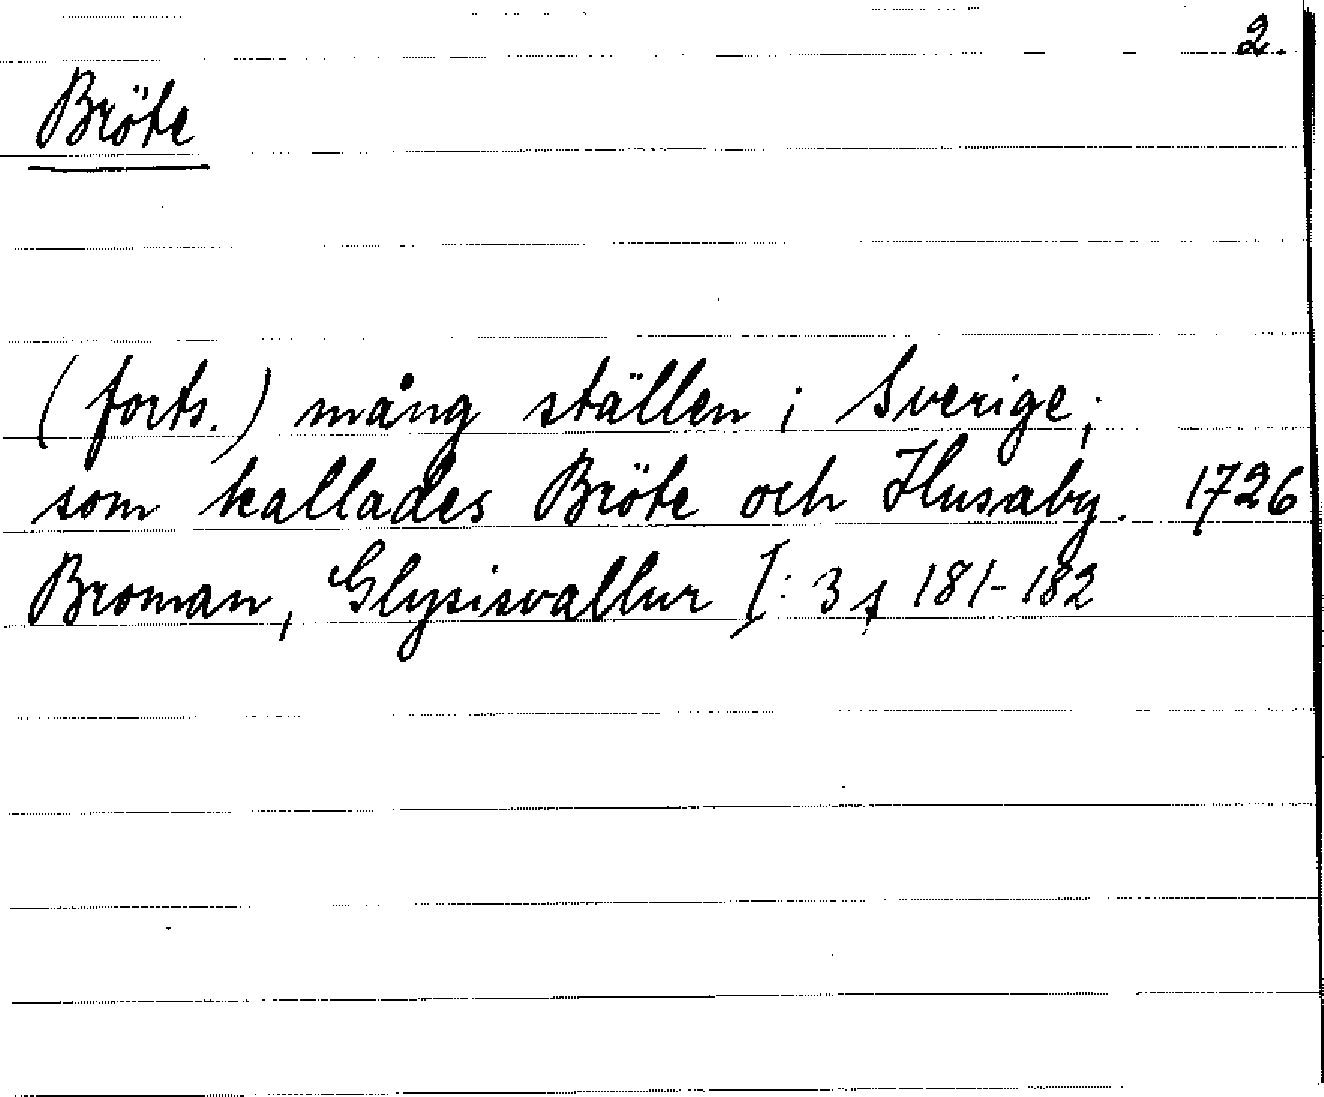 2.
Bröte
(forts.) mång ställen i Sverige;
som kallades Bröte och Husaby. 1726
Broman, Glysisvallur I: 3 s 181-182